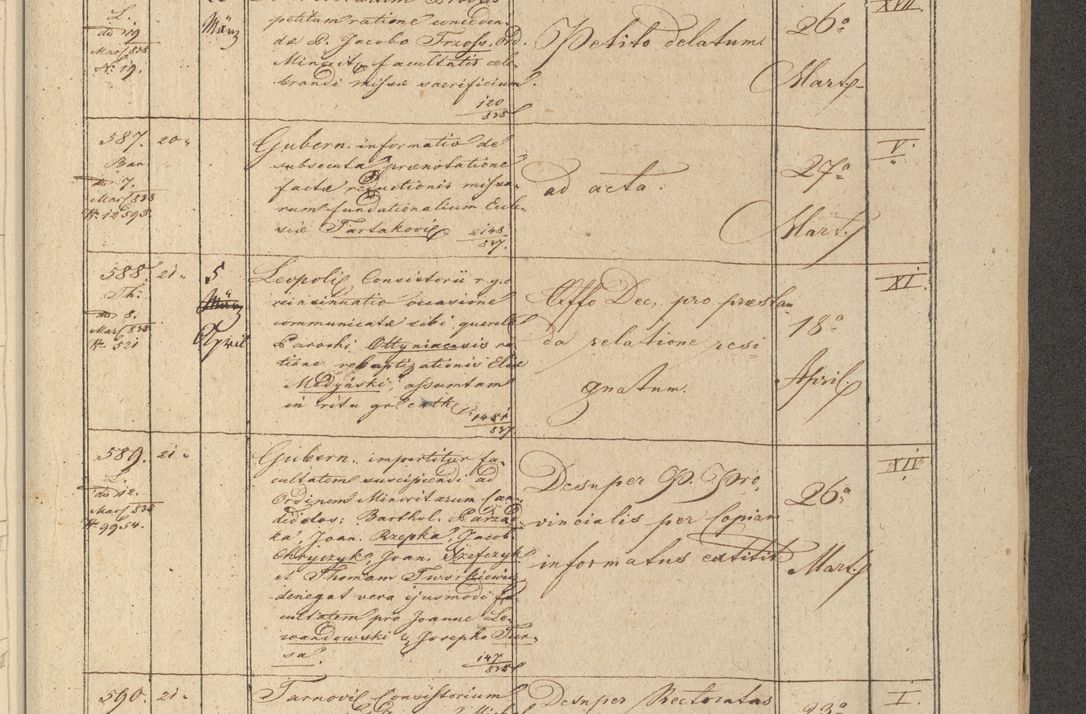 petitum ratione conceden-
dae P. Jacobo Trzos, Ord.
Minorit. facultatis cele-
brandi missae sacrificium.
120
838
L.
ad 19.
Mart 838
N. 19.
März
Petito delatum.
26a
Mart.
XVII.
587.
20 "
ad 7.
Mart 838
N. 12593.
Gubern. informatio de
subsecuta praenotatione
factae reductionis missa-
rum fundationalium Eccle-
siae Tartakoviens
2148
837.
ad acta.
27a
Mart.
V.
588.
21 "
Th.
ad 8.
Mart 838
N. 521
5
März
April
Leopolis Consistorii
reinsinuatio occasione
communicatae sibi querelae
Parochi Ottyniaensis ra-
tione rebaptizationis Eliae
Medyński, assumtam
in ritu gr. cath.
1481
837.
Offo Dec. pro praestan
da relatione resi
gnatum.
18a
April
XI.
589.
21 "
L.
ad 12.
Mart 838
N. 9954.
Gubern. impertitur fa-
cultatem suscipiendi ad
Ordinem Minoritarum Can-
didatos: Barthol. Parza
ka, Joan. Rzepka, Jacob
Chryczyk, Joan. Szefczyk
et Thomam Twor
denegat vero ejusmodi fa-
cultatem pro Joanne Le-
wandowski & Josepho Tur-
sa.
147
838
Desuper P. Pro
vincialis per Copiam
informatus extitit
26a
Mart.
XIV.
590.
21 "
Tarnovis Consistorium
Desuper Rectoratus
I.